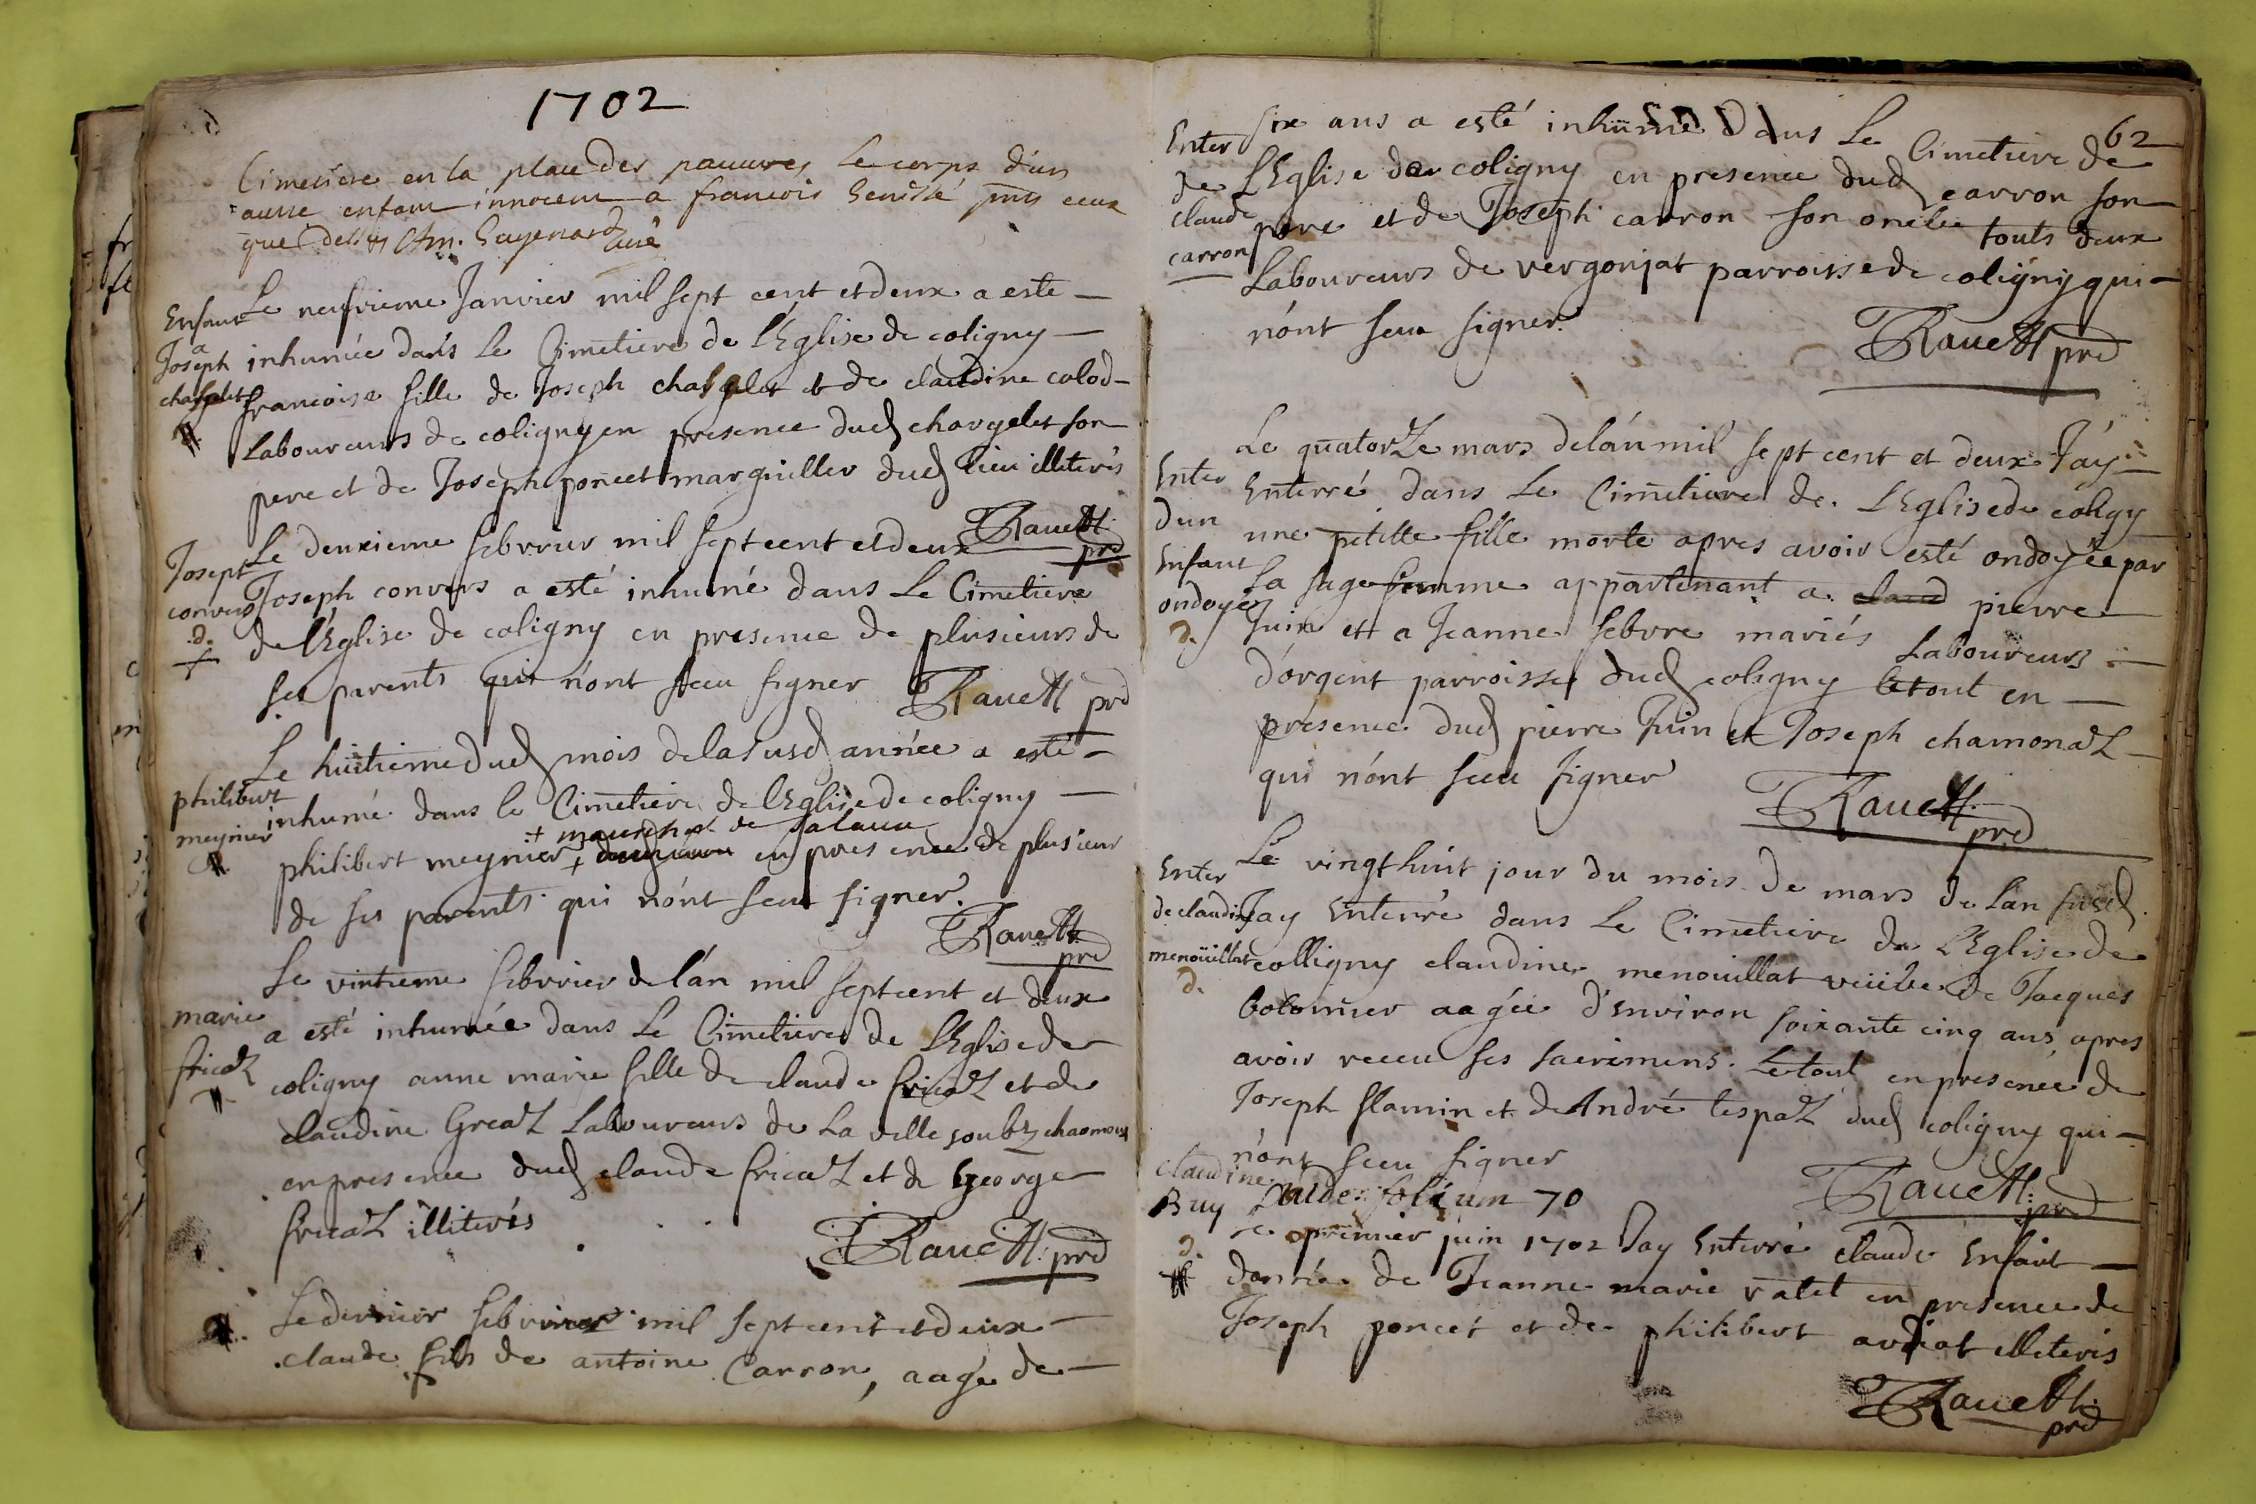 1702
Cimetiere en la place des pauures, le corps d'un
autre enfant innocent a francois puis ceux
que dessus curé
Enfant
a
Joseph
chargelet
Le neufvieme Janvier mil sept cent et deux a esté —
inhumée dans Le Cimetiere de l'Église de coligny —
francoise fille de Joseph chargelet et de claudine colod-
Laboureurs de coligny en presence dud chargelet son
pere et de Joseph poncet marguiller dud lieu illiterés
Ravett
prd
Joseph
convers
.d.
Le deuxieme febvrier mil sept cent et deux
Joseph convers a esté inhumé dans Le Cimetiere
de l'Église de coligny en presence de plusieurs de
ses parents qui n'ont sceu signer Ravett prd
philibert
meynier
Le huitieme dud mois de la susd année a esté —
inhumé dans le Cimetiere de l'Eglise de coligny —
+ mareschal de
philibert meynier + en presence de plusieur
de ses parents qui n'ont sceu signer.
Ravett
prd
marie
fricaz
Le vintieme febvrier de l'án mil sept cent et deux
a esté inhumée dans Le Cimetiere de L'Eglise de
coligny anne marie fille de claude fricaz et de
claudine Greaz Laboureurs de La ville soubz chaomoux
en presence dud claude fricaz et de George
fricaz illiterés
Ravett: prd
Le dernier febvrier mil sept cent et deux —
claude fils de antoine Carron, aagé de —
62
Enter
de
claude
carron
six ans a esté inhumé dans Le Cimetiere de
L'Eglise de coligny en presence dud carron son
pere et de Joseph carron son oncle touts deux
Laboureurs de vergonjat parroisse de coligny qui —
n'ont sceu signer.
Ravett prd
Enter
dun
Enfant
ondoyéz
d.
Le quatorze mars de lán mil sept cent et deux Jáy
Enterré dans Le Cimetiere de L'Eglise de coligy
une petitte fille morte apres avoir esté ondoyée par
La sage femme appartenant a claud pierre
Juin et a Jeanne febvre mariés Laboureurs —
d'orgent parroisse dud coligny le tout en —
présence dud pierre Juin et Joseph chamonaz —
qui n'ont sceu signer
Ravett
prd
Enter
de claudine
menoüillat
d.
Le vingt huit jour du mois de mars de lan susd
Jay Enterré dans Le Cimetiere de L'Eglise de
colligny claudine menouillat veuve de Jacques
botonnier aagée d'Environ soixante cinq ans apres
avoir receu ses sacrimens. Le tout en présence de
Joseph flamin et de André lespaz dud coligny qui —
n'ont sceu signer
Ravett:
prd
claudine
Buy
vide folium 70
d.
Le premier juin 1702 Jay Enterré claude Enfant —
donnée de Jeanne marie valet en presence de
Joseph poncet et de philibert ardiat illeterés
Ravett.
prd